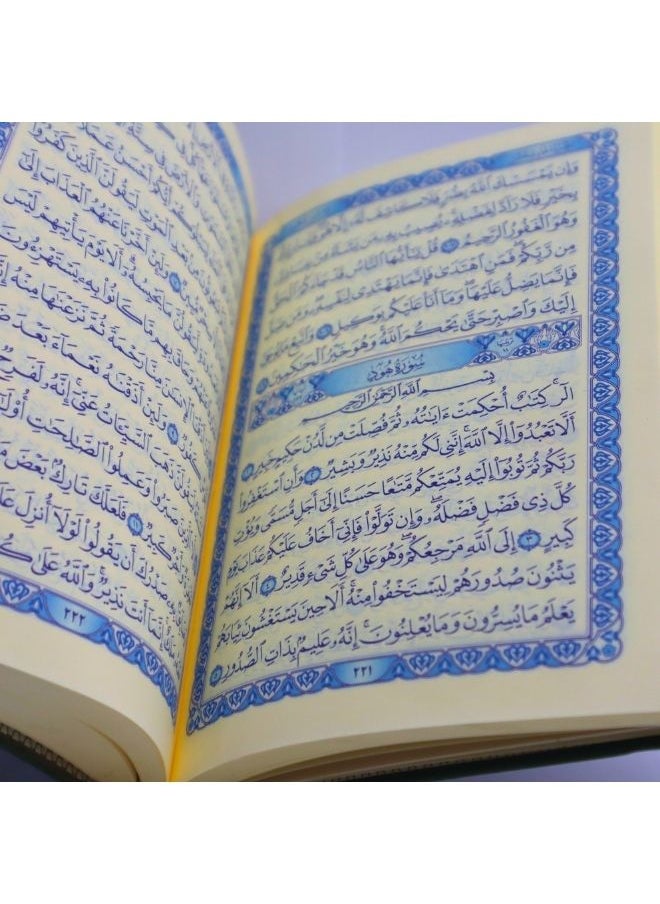 وَإِن يَمْسَسْكَ ٱللَّهُ بِضُرٍّ فَلَا كَاشِفَ لَهُۥٓ إِلَّا هُوَ
بِخَيْرٍ فَلَا رَآدَّ لِفَضْلِهِۦ يُصِيبُ بِهِۦ مَن يَشَآءُ مِنْ عِبَادِهِۦ
وَهُوَ ٱلْغَفُورُ ٱلرَّحِيمُ ١٠٧ قُلْ يَٰٓأَيُّهَا ٱلنَّاسُ قَدْ جَآءَكُمُ ٱلْحَقُّ
مِن رَّبِّكُمْ فَمَنِ ٱهْتَدَىٰ فَإِنَّمَا يَهْتَدِى لِنَفْسِهِۦ وَمَن ضَلَّ
فَإِنَّمَا يَضِلُّ عَلَيْهَا وَمَآ أَنَا۠ عَلَيْكُم بِوَكِيلٍ ١٠٨ وَٱتَّبِعْ مَا يُوحَىٰٓ
إِلَيْكَ وَٱصْبِرْ حَتَّىٰ يَحْكُمَ ٱللَّهُ وَهُوَ خَيْرُ ٱلْحَٰكِمِينَ ١٠٩
سُورَةُ هُودٍ
بِسْمِ ٱللَّهِ ٱلرَّحْمَٰنِ ٱلرَّحِيمِ
الٓر كِتَٰبٌ أُحْكِمَتْ ءَايَٰتُهُۥ ثُمَّ فُصِّلَتْ مِن لَّدُنْ حَكِيمٍ خَبِيرٍ ١
أَلَّا تَعْبُدُوٓا۟ إِلَّا ٱللَّهَ إِنَّنِى لَكُم مِّنْهُ نَذِيرٌ وَبَشِيرٌ ٢ وَأَنِ ٱسْتَغْفِرُوا۟
رَبَّكُمْ ثُمَّ تُوبُوٓا۟ إِلَيْهِ يُمَتِّعْكُم مَّتَٰعًا حَسَنًا إِلَىٰٓ أَجَلٍ مُّسَمًّى وَيُؤْتِ
كُلَّ ذِى فَضْلٍ فَضْلَهُۥ وَإِن تَوَلَّوْا۟ فَإِنِّىٓ أَخَافُ عَلَيْكُمْ عَذَابَ يَوْمٍ
كَبِيرٍ ٣ إِلَى ٱللَّهِ مَرْجِعُكُمْ وَهُوَ عَلَىٰ كُلِّ شَىْءٍ قَدِيرٌ ٤ أَلَآ إِنَّهُمْ
يَثْنُونَ صُدُورَهُمْ لِيَسْتَخْفُوا۟ مِنْهُ أَلَا حِينَ يَسْتَغْشُونَ ثِيَابَهُمْ
يَعْلَمُ مَا يُسِرُّونَ وَمَا يُعْلِنُونَ إِنَّهُۥ عَلِيمٌۢ بِذَاتِ ٱلصُّدُورِ ٥
٢٢١
أَحْسَنُ عَمَلًا
بَعْدِ ٱلْمَوْتِ لَيَقُولَنَّ ٱلَّذِينَ كَفَرُوٓا۟
وَلَئِنْ أَخَّرْنَا عَنْهُمُ ٱلْعَذَابَ إِلَىٰٓ
لَّيَقُولُنَّ مَا يَحْبِسُهُۥٓ أَلَا يَوْمَ يَأْتِيهِمْ لَيْسَ
وَحَاقَ بِهِم مَّا كَانُوا۟ بِهِۦ يَسْتَهْزِءُونَ
ٱلْإِنسَٰنَ مِنَّا رَحْمَةً ثُمَّ نَزَعْنَٰهَا مِنْهُ
وَلَئِنْ أَذَقْنَٰهُ نَعْمَآءَ بَعْدَ
ذَهَبَ ٱلسَّيِّـَٔاتُ عَنِّىٓ إِنَّهُۥ لَفَرِحٌ
صَبَرُوا۟ وَعَمِلُوا۟ ٱلصَّٰلِحَٰتِ
كَبِيرٌ ١١ فَلَعَلَّكَ تَارِكٌۢ بَعْضَ
صَدْرُكَ أَن يَقُولُوا۟ لَوْلَآ أُنزِلَ
إِنَّمَآ أَنتَ نَذِيرٌ وَٱللَّهُ عَلَىٰ
٢٢٢